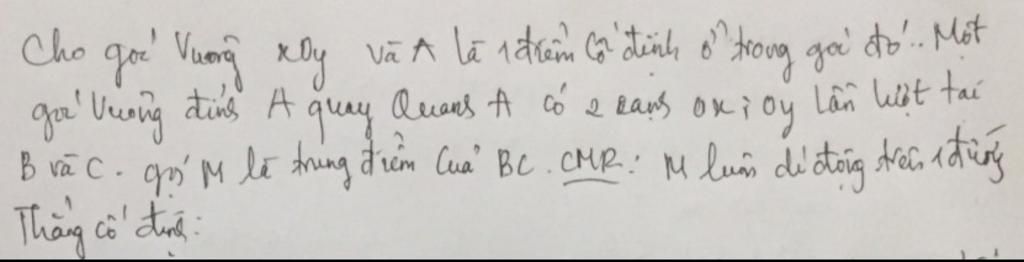 Cho góc Vuông xOy và A là 1 điểm Cố định ở trong góc đó. Một
góc Vuông đỉnh A quay Quanh A có 2 cạnh Ox; Oy lần lượt tại
B và C. gọi M là trung điểm của BC. CMR: M luôn di động trên 1 đường
Thẳng cố định: